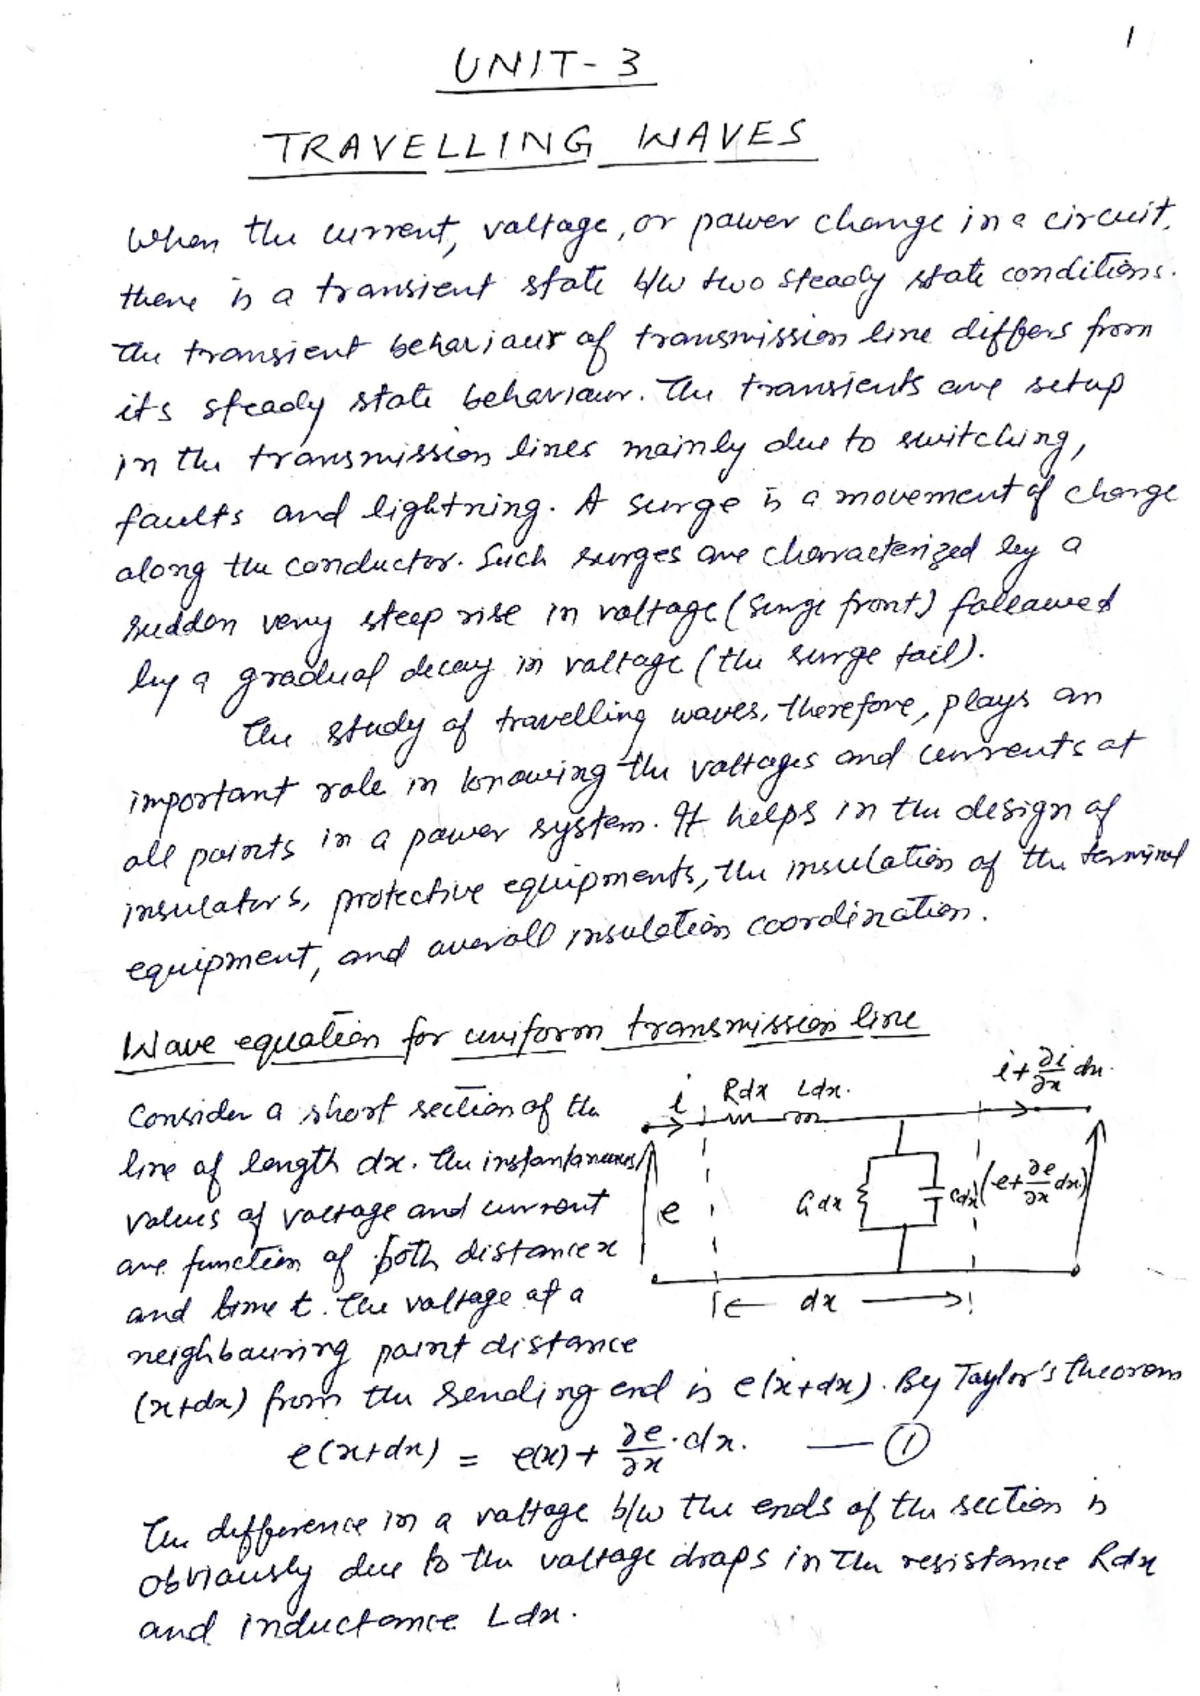 1
UNIT-3
TRAVELLING WAVES
When the current, voltage, or power change in a circuit,
there is a transient state b/w two steady state conditions.
The transient behaviour of transmission line differs from
its steady state behaviour. The transients are setup
in the transmission lines mainly due to switching,
faults and lightning. A surge is a movement of charge
along the conductor. Such surges are characterized by a
sudden very steep rise in voltage (surge front) followed
by a gradual decay in voltage (the surge tail).
The study of travelling waves, therefore, plays an
important role in knowing the voltages and currents at
all points in a power system. It helps in the design of
insulators, protective equipments, the insulation of the terminal
equipment, and overall insulation coordination.
Wave equation for uniform transmission line
Consider a short section of the
line of length dx. The instantaneous
values of voltage and current
are function of both distance x
and time t. The voltage at a
neighbouring point distance
i Rdx Ldx. i+∂i/∂x dx.
e Gdx Cdx (e+∂e/∂x dx)
dx
(x+dx) from the sending end is e(x+dx). By Taylor's theorem
e(x+dx) = e(x) + ∂e/∂x . dx. — ①
The difference in a voltage b/w the ends of the section is
obviously due to the voltage drops in the resistance Rdx
and inductance Ldx.